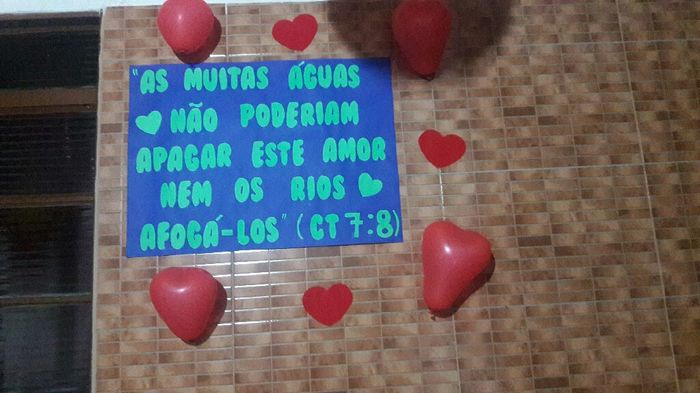 "AS MUITAS ÁGUAS
NÃO PODERIAM
APAGAR ESTE AMOR
NEM OS RIOS
AFOGÁ-LOS" (CT 7:8)